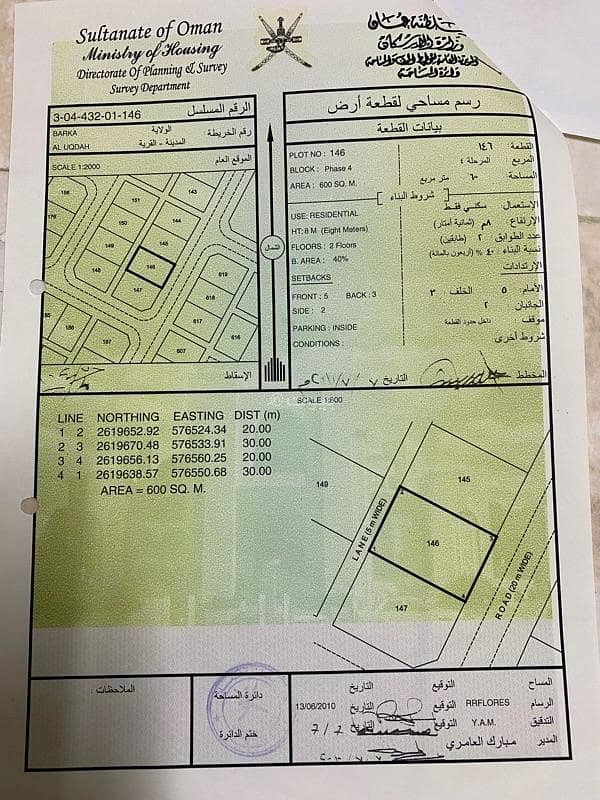 Sultanate of Oman
Ministry of Housing
Directorate Of Planning & Survey
Survey Department
سلطنة عمان
وزارة الإسكان
3-04-432-01-146 الرقم المسلسل
BARKA الولاية
AL UQDAH المدينة - القرية
رقم الخريطة
SCALE 1:2000 الموقع العام
156
151
143
150
144
149
145
148
146
147
185
186
619
618
617
616
607
الشمال
الإسقاط
رسم مساحي لقطعة أرض
بيانات القطعة
PLOT NO : 146
القطعة: ١٤٦
BLOCK : Phase 4
المربع المرحلة ٤
AREA : 600 SQ. M.
المساحة: ٦٠ متر مربع
شروط البناء
USE: RESIDENTIAL
الإستعمال سكني فقط
HT: 8 M (Eight Meters)
الإرتفاع ٨م (ثمانية أمتار)
FLOORS : 2 Floors
عدد الطوابق ٢ (طابقين)
B. AREA : 40%
نسبة البناء ٤٠ % (أربعون بالمائة)
SETBACKS
الإرتدادات
FRONT : 5 BACK : 3
الأمام ٥ الخلف ٣
SIDE : 2
الجانبان ٢
PARKING : INSIDE
موقف داخل حدود القطعة
CONDITIONS :
شروط أخرى
المخطط التاريخ
SCALE 1:600
LINE NORTHING EASTING DIST (m)
1 2 2619652.92 576524.34 20.00
2 3 2619670.48 576533.91 30.00
3 4 2619656.13 576560.25 20.00
4 1 2619638.57 576550.68 30.00
AREA = 600 SQ. M.
149
145
146
147
LANE (5 m WIDE)
ROAD (20 m WIDE)
الملاحظات :
دائرة المساحة
ختم الدائرة
المساح التوقيع التاريخ
الرسام RRFLORES التوقيع التاريخ 13/06/2010
التدقيق Y.A.M. التوقيع التاريخ 7/7
المدير مبارك العامري